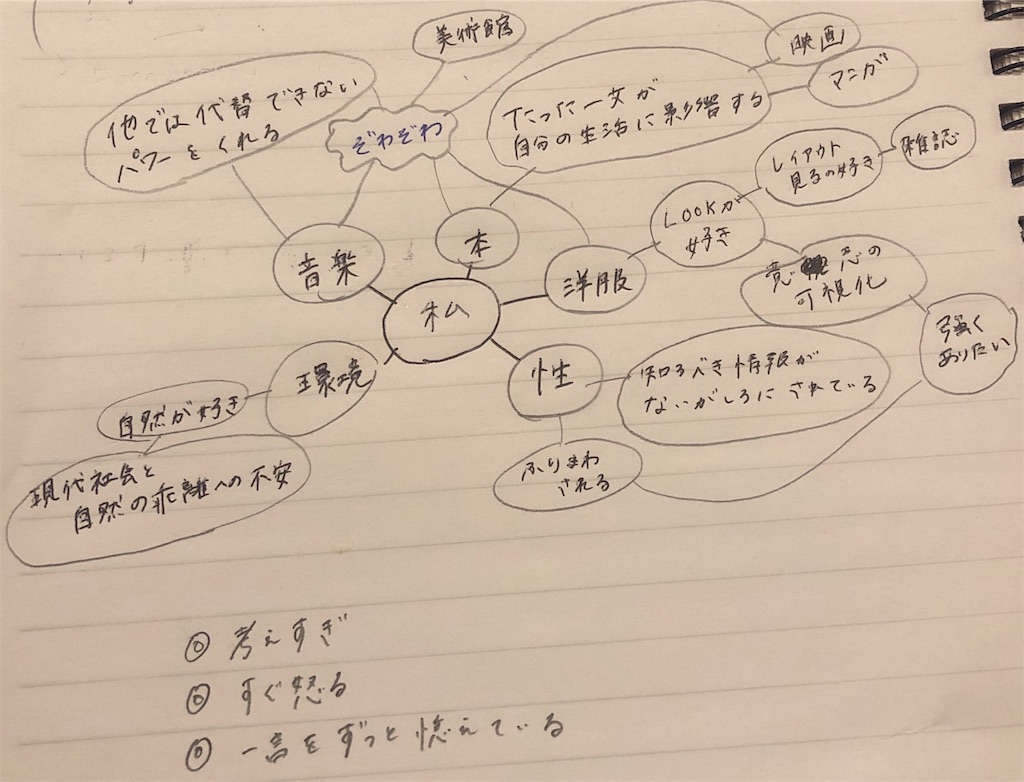 美術館
映画
マンガ
他では代替できない
パワーをくれる
ぞわぞわ
たった一文が
自分の生活に影響する
レイアウト
見るの好き
雑誌
音楽
本
洋服
LOOKが
好き
意思の
可視化
私
強く
ありたい
環境
性
知るべき情報が
ないがしろにされている
自然が好き
ふりまわ
される
現代社会と
自然の乖離への不安
◎ 考えすぎ
◎ すぐ怒る
◎ 一言をずっと憶えている